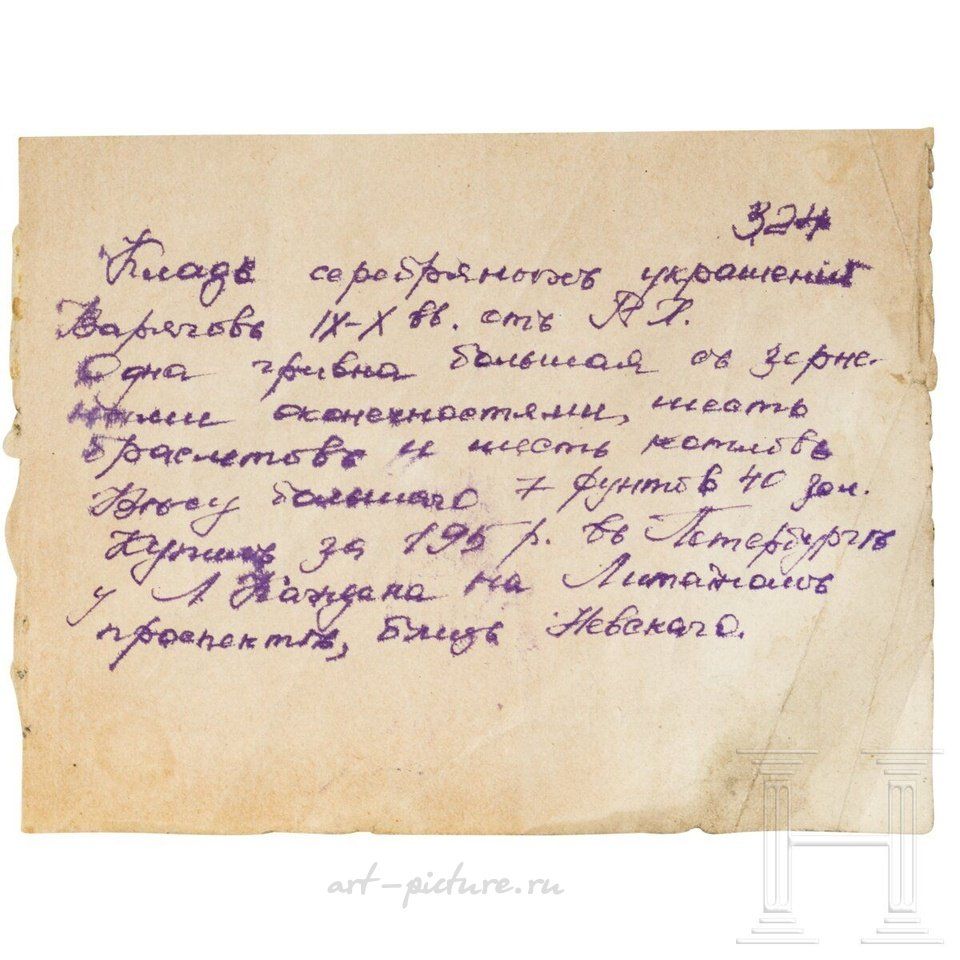 324
Кладъ серебряныхъ украшеній
Варяговъ IX-X вв. отъ Р.Х.
Одна гривна большая съ зерне-
ными оконечностями, шесть
браслетовъ и шесть
Вѣсу большаго 7 фунтовъ 40 зол.
Купилъ за 195 р. въ Петербургѣ
у Л Каждана на
проспектѣ, близь Невскаго.
art-picture.ru
H